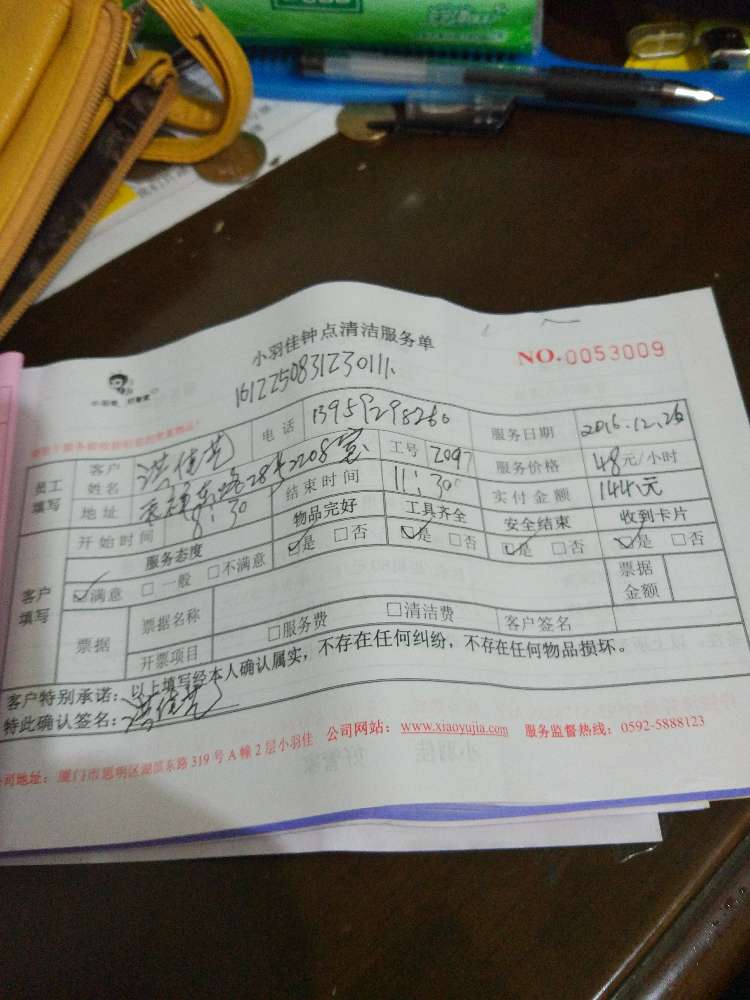 小羽佳钟点清洁服务单
NO.0053009
1612250831230111
员工填写 客户姓名 洪佳艺 电话 13959298260 服务日期 2016.12.26
地址 东路28号2208室 工号 2097 服务价格 48元/小时
开始时间 8:30 结束时间 11:30 实付金额 144元
客户填写 服务态度 物品完好 工具齐全 安全结束 收到卡片
☑满意 □一般 □不满意 ☑是 □否 ☑是 □否 ☑是 □否 ☑是 □否
票据 票据名称 票据金额
开票项目 □服务费 □清洁费 客户签名
客户特别承诺：以上填写经本人确认属实，不存在任何纠纷，不存在任何物品损坏。
特此确认签名：洪佳艺
公司地址：厦门市思明区湖滨东路319号A幢2层小羽佳 公司网站：www.xiaoyujia.com 服务监督热线：0592-5888123